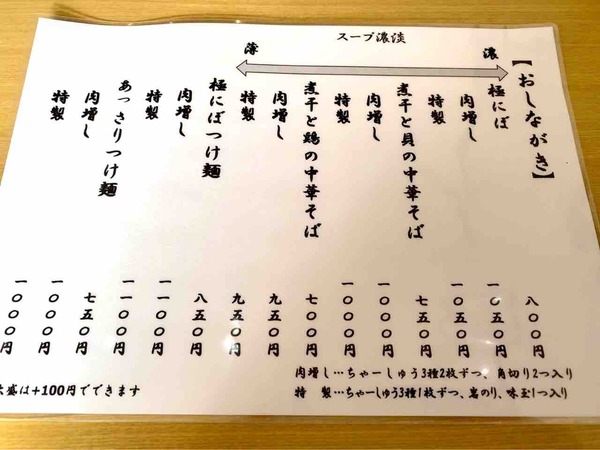 スープ濃淡
濃
薄
【おしながき】
極にぼ 八〇〇円
肉増し 一〇五〇円
特製 一〇五〇円
煮干と貝の中華そば 七五〇円
肉増し 一〇〇〇円
特製 一〇〇〇円
煮干と鶏の中華そば 七〇〇円
肉増し 九五〇円
特製 九五〇円
極にぼつけ麺 八五〇円
肉増し 一一〇〇円
特製 一一〇〇円
あっさりつけ麺 七五〇円
肉増し 一〇〇〇円
特製 一〇〇〇円
肉増し…ちゃーしゅう3種2枚ずつ、角切り2つ入り
特 製…ちゃーしゅう3種1枚ずつ、岩のり、味玉1つ入り
大盛は+100円でできます